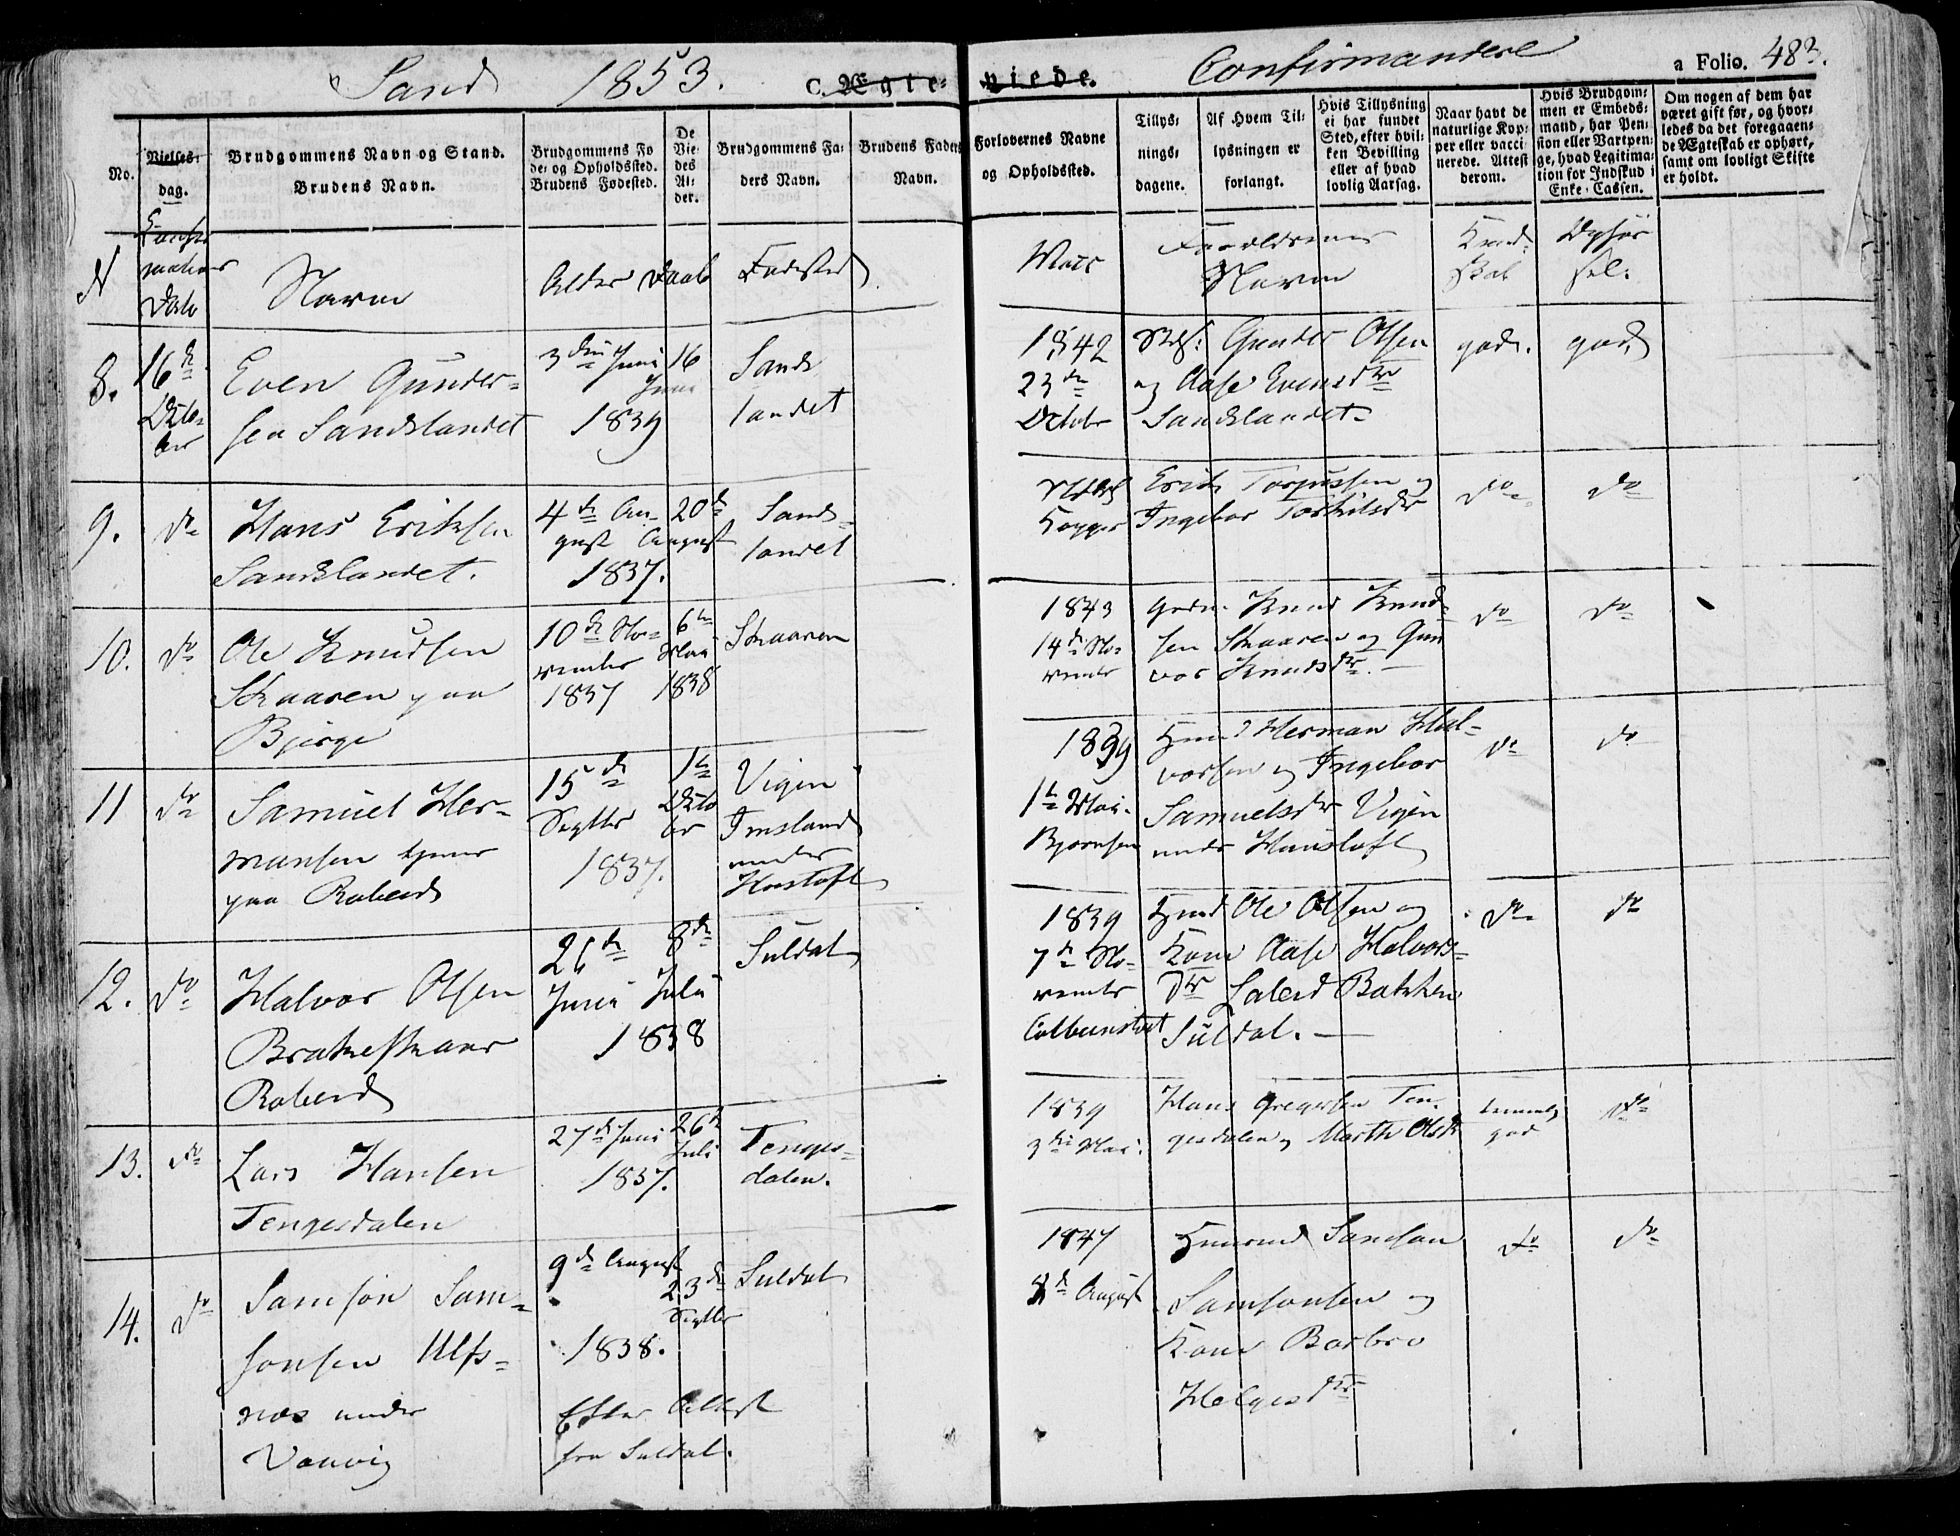 Sand 1853. C. Ægte-
viede. Confirmandere a Folio. 483.
No.
Vielses-
dag.
Brudgommens Navn og Stand.
Brudens Navn.
Brudgommens Fø
de- og Opholdssted.
Brudens Fødested.
De
Vie-
des
Al-
der.
Brudgommens Fa-
ders Navn.
Brudens Faders
Navn.
Forlovernes Navne
og Opholdssted.
Tillys-
nings-
dagene.
Af Hvem Til-
lysningen er
forlangt.
Hvis Tillysning
ei har fundet
Sted, efter hvil-
ken Bevilling
eller af hvad
lovlig Aarsag.
Naar havt de
naturlige Kop-
per eller vacci-
nerede. Attest
derom.
Hvis Brudgom-
men er Embeds-
mand, har Pen-
sion eller Vartpen-
ge, hvad Legitima-
tion for Indskud i
Enke-Cassen.
Om nogen af dem har
været gift før, og hvor-
ledes da det foregaaen-
de Ægteskab er ophørt,
samt om lovligt Skifte
er holdt.
N
Confir
mations
Dato
Navn
Alder
Daab
Fødested
Vacc
Forældrenes
Navne
Kund-
skab
Opfør
sel.
8.
16de
Octo-
ber
Even Gunder-
sen Sandslandet
3die Juni
1839
16
Juni
Sands
landet
1842
23de
October
Gunder Olsen
og Aase Evensdtr
Sandslandet
god.
god
9.
do
Hans Eriksen
Sandslandet.
4de Au-
gust
1837.
20de
August
Sands-
landet
Kopper
Erik Torgussen og
Ingebor Torkilsdtr
do
do
10.
do
Ole Knudsen
Skaaren paa
Bjerge
10de No-
vember
1837
6te
Mai
1838
Skaaren
1843
14de No-
vember
Knud Knud-
sen Skaaren og Gun
vor Knudsdtr.
do
do
11
do
Samuel Her-
mansen tjener
paa Raberd
15de
Septbr
1837.
1te
Octo
ber
Vigen
Imsland
under
Hustoft
1839
1te Mai.
Bjørnsen
Huusmd Herman Hal-
vorsen og Ingebor
Samuelsdtr Vigen
under Huustoft
do
do
12.
do
Halvor Olsen
Brakeskaar
Raberd
26de
Juni
8de
Juli
1838
Suldal
1839
7de No-
vember
Colbenstvet
Husmd Ole Olsen og
Kone Aase Halvors-
dtr Laleid Bakken
Suldal.
do
do
13.
do
Lars Hansen
Tengesdalen
27de Juni
1837.
26de
Juli
Tenges-
dalen.
1839
3die Mai.
Hans Gregersen Ten-
gesdalen og Marthe Olsdtr
temmelig
god
do
14.
do
Samson Sam-
sonsen Ulfs-
næs under
Vanvig
9de August
1838.
23de
Septbr
Suldal
Efter Attest
fra Suldal.
1847
8de August
Samson
Samsonsen og
Kone Barbro
Helgesdtr
do
do